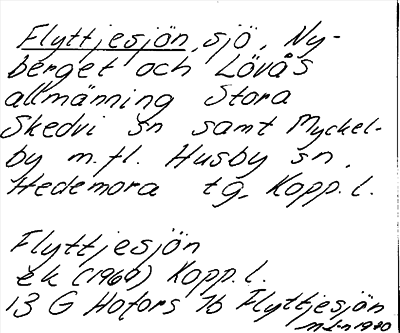 Flyttjesjön, sjö, Ny-
berget och Lövås
allmänning Stora
Skedvi sn samt Myckel-
by m.fl. Husby sn,
Hedemora tg, Kopp. l.
Flyttjesjön
ek (1960) Kopp. l.
13 G Hofors 7b Flyttjesjön
1980